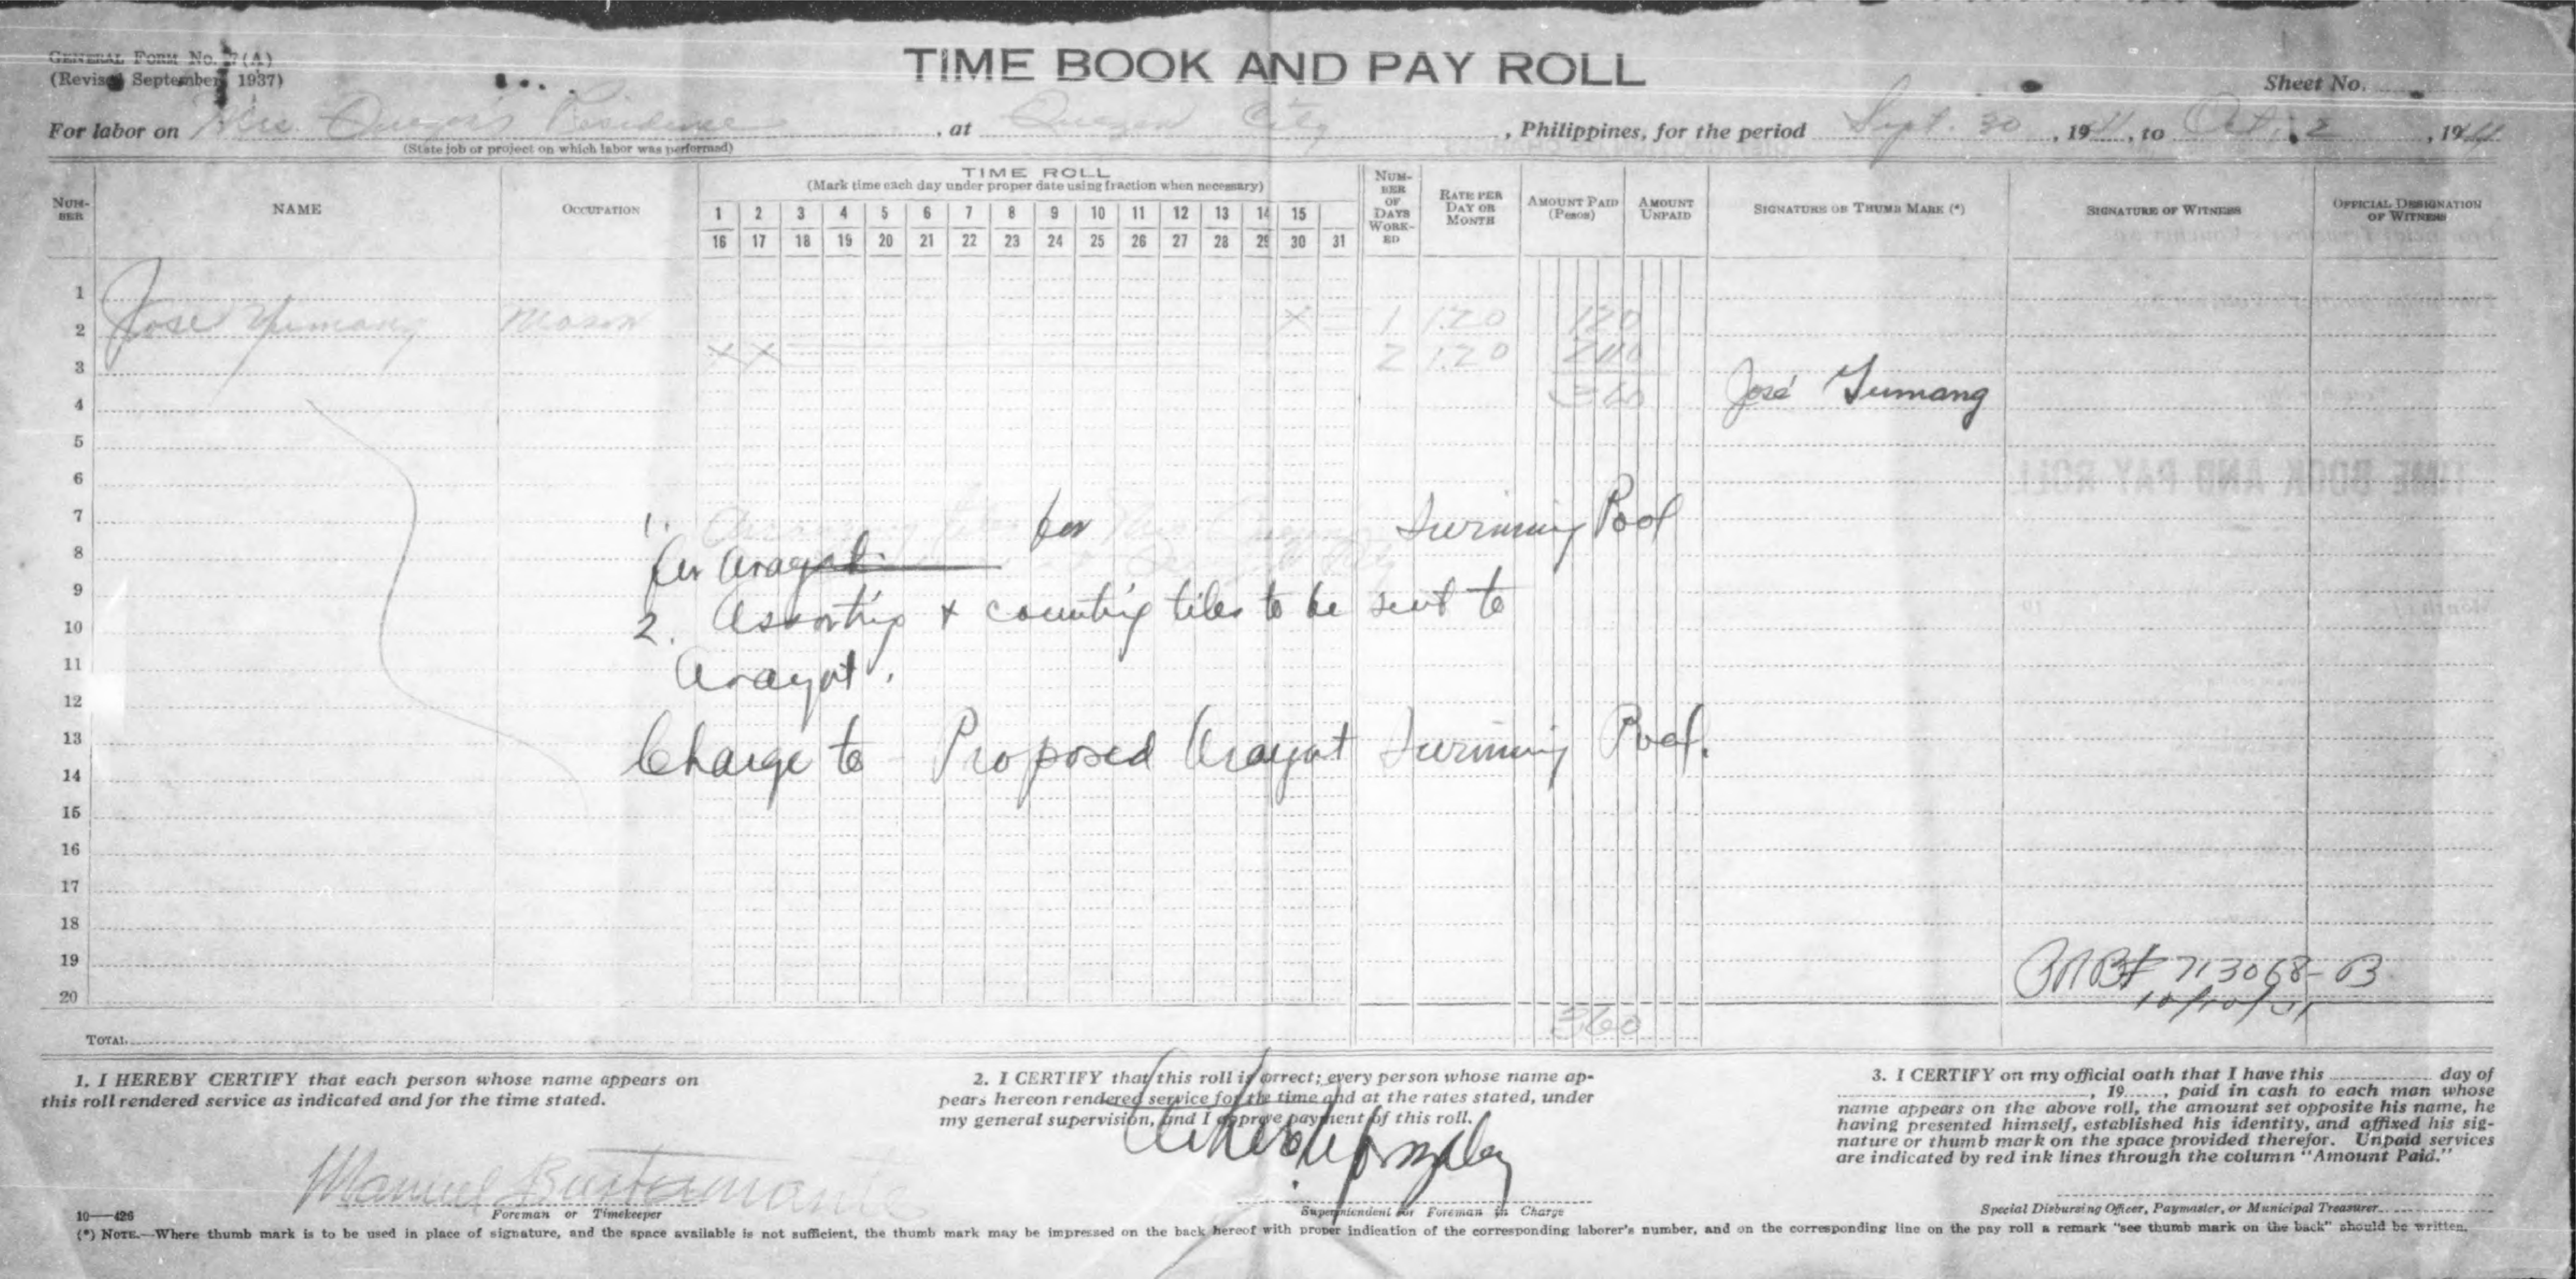 GENERAL FORM No. 7(A)
(Revised September, 1937)
TIME BOOK AND PAY ROLL
Sheet No.
For labor on Mrs. Quezon's Residence, at Quezon City, Philippines, for the period Sept. 30, 1941, to Oct. 2, 1941
(State job or project on which labor was performed)
NUMBER
NAME
OCCUPATION
TIME ROLL
(Mark time each day under proper date using fraction when necessary)
1 2 3 4 5 6 7 8 9 10 11 12 13 14 15
16 17 18 19 20 21 22 23 24 25 26 27 28 29 30 31
NUMBER OF DAYS WORKED
RATE PER DAY OR MONTH
AMOUNT PAID (Pesos)
AMOUNT UNPAID
SIGNATURE OR THUMB MARK (*)
SIGNATURE OF WITNESS
OFFICIAL DESIGNATION OF WITNESS
1
2 Jose Yumang Mason X 1 1.20 1 20
3 X X 2 1.20 2 40
4 3 60 José Yumang
5
6
7 1. for Swimming Pool
8 for Arayat
9
10 2. Assorting & counting tiles to be sent to
11 Arayat.
12
13 Charge to Proposed Arayat Swimming Pool.
14
15
16
17
18
19 # 713068-B
20 10/10/41
TOTAL 3 60
1. I HEREBY CERTIFY that each person whose name appears on
this roll rendered service as indicated and for the time stated.
Manuel Bustamante
Foreman or Timekeeper
2. I CERTIFY that this roll is correct; every person whose name ap-
pears hereon rendered service for the time and at the rates stated, under
my general supervision, and I approve payment of this roll.
Superintendent or Foreman in Charge
3. I CERTIFY on my official oath that I have this day of
, 19 , paid in cash to each man whose
name appears on the above roll, the amount set opposite his name, he
having presented himself, established his identity, and affixed his sig-
nature or thumb mark on the space provided therefor. Unpaid services
are indicated by red ink lines through the column "Amount Paid."
Special Disbursing Officer, Paymaster, or Municipal Treasurer
10—426
(*) NOTE.—Where thumb mark is to be used in place of signature, and the space available is not sufficient, the thumb mark may be impressed on the back hereof with proper indication of the corresponding laborer's number, and on the corresponding line on the pay roll a remark "see thumb mark on the back" should be written.